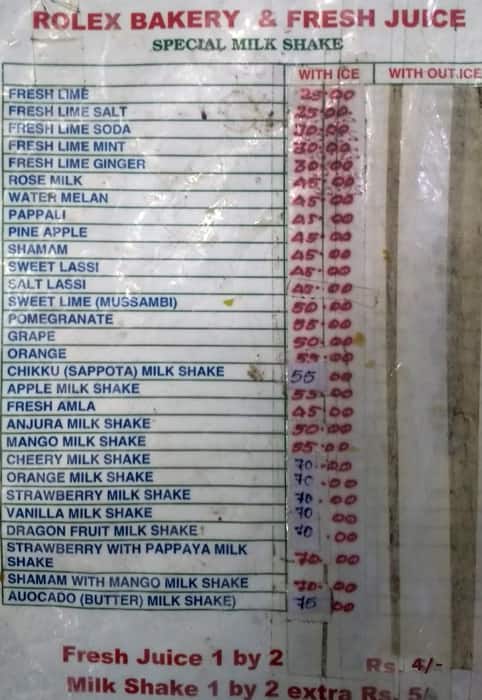 ROLEX BAKERY & FRESH JUICE
SPECIAL MILK SHAKE
WITH ICE WITH OUT ICE
FRESH LIME 25.00
FRESH LIME SALT 25.00
FRESH LIME SODA 30.00
FRESH LIME MINT 30.00
FRESH LIME GINGER 30.00
ROSE MILK 45.00
WATER MELAN 45.00
PAPPALI 45.00
PINE APPLE 45.00
SHAMAM 45.00
SWEET LASSI 45.00
SALT LASSI 45.00
SWEET LIME (MUSSAMBI) 50.00
POMEGRANATE 55.00
GRAPE 50.00
ORANGE 55.00
CHIKKU (SAPPOTA) MILK SHAKE 55 00
APPLE MILK SHAKE 55.00
FRESH AMLA 45.00
ANJURA MILK SHAKE 50.00
MANGO MILK SHAKE 55.00
CHEERY MILK SHAKE 70.00
ORANGE MILK SHAKE 70.00
STRAWBERRY MILK SHAKE 70.00
VANILLA MILK SHAKE 70.00
DRAGON FRUIT MILK SHAKE 70.00
STRAWBERRY WITH PAPPAYA MILK
SHAKE 70.00
SHAMAM WITH MANGO MILK SHAKE 70.00
AUOCADO (BUTTER) MILK SHAKE) 75 00
Fresh Juice 1 by 2 Rs. 4/-
Milk Shake 1 by 2 extra Rs. 5/